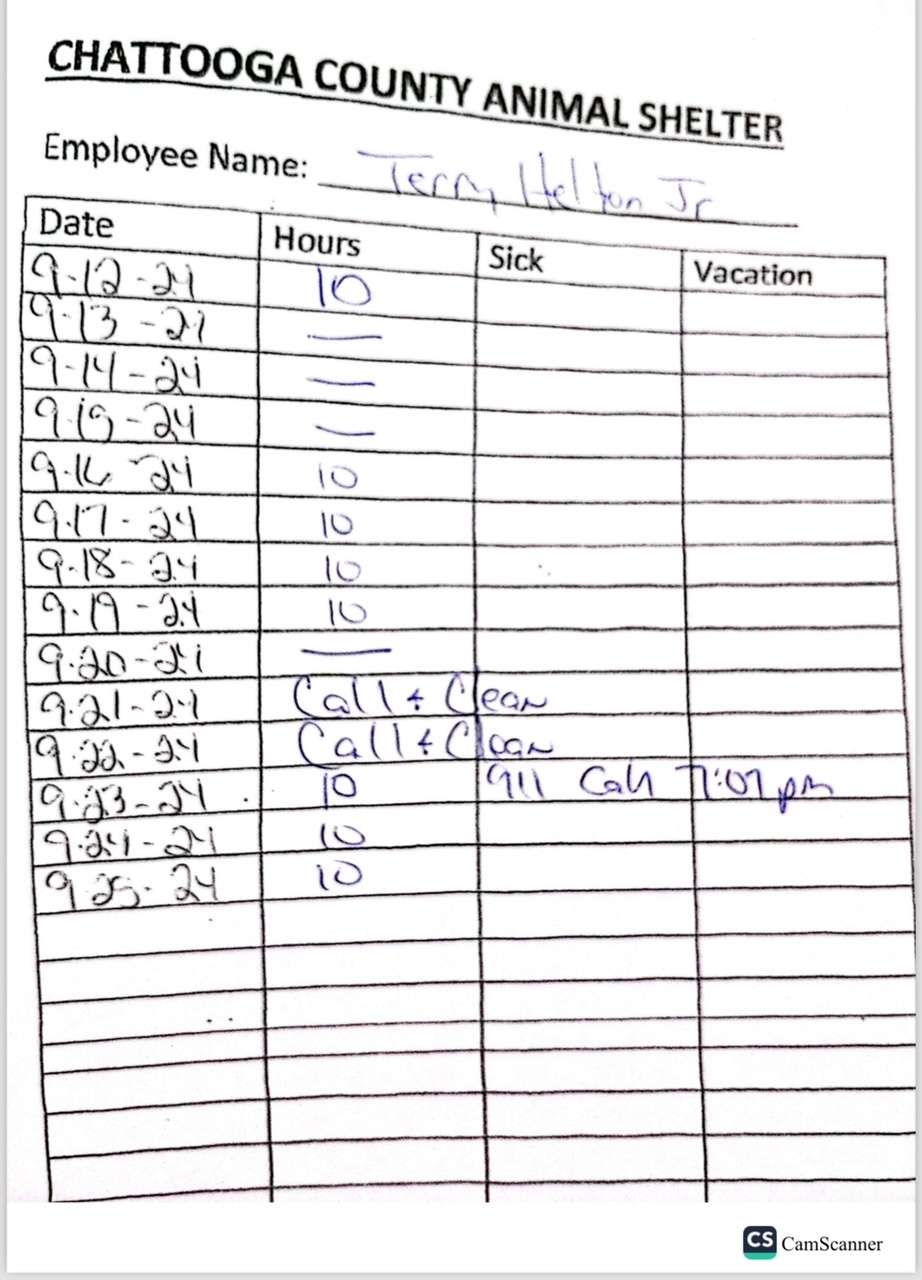 CHATTOOGA COUNTY ANIMAL SHELTER
Employee Name: Terry Helton Jr
Date Hours Sick Vacation
9-12-24 10
9-13-24 —
9-14-24 —
9-15-24 —
9-16 24 10
9-17-24 10
9-18-24 10
9-19-24 10
9-20-24 —
9-21-24 Call + Clean
9-22-24 Call + Clean
9-23-24 10 911 Call 7:07 pm
9-24-24 10
9-25-24 10
CS CamScanner